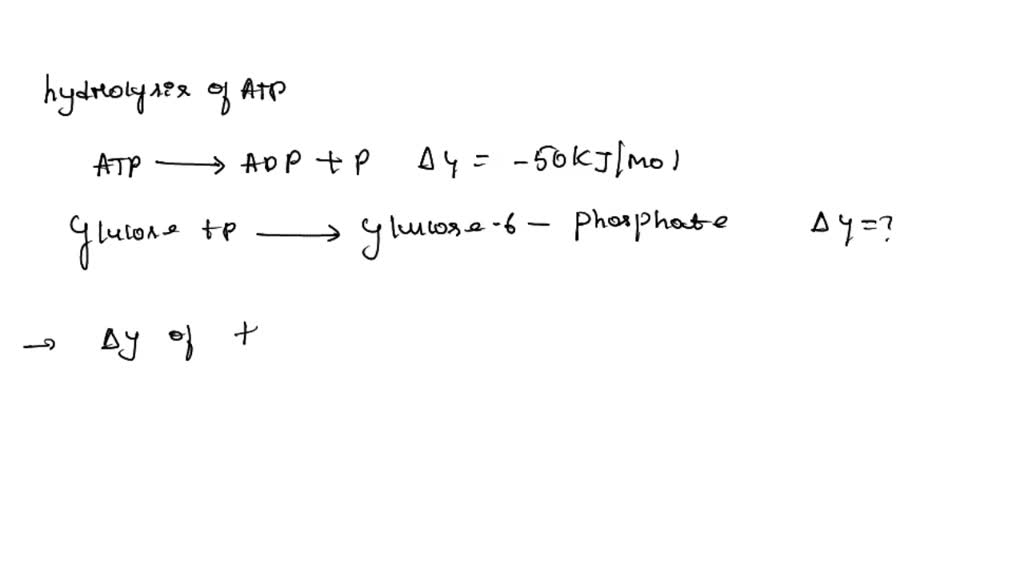 hydrolysis of ATP
ATP → ADP + P Δy = -50KJ/mol
Glucose +P → glucose-6- Phosphate Δy=?
→ Δy of t